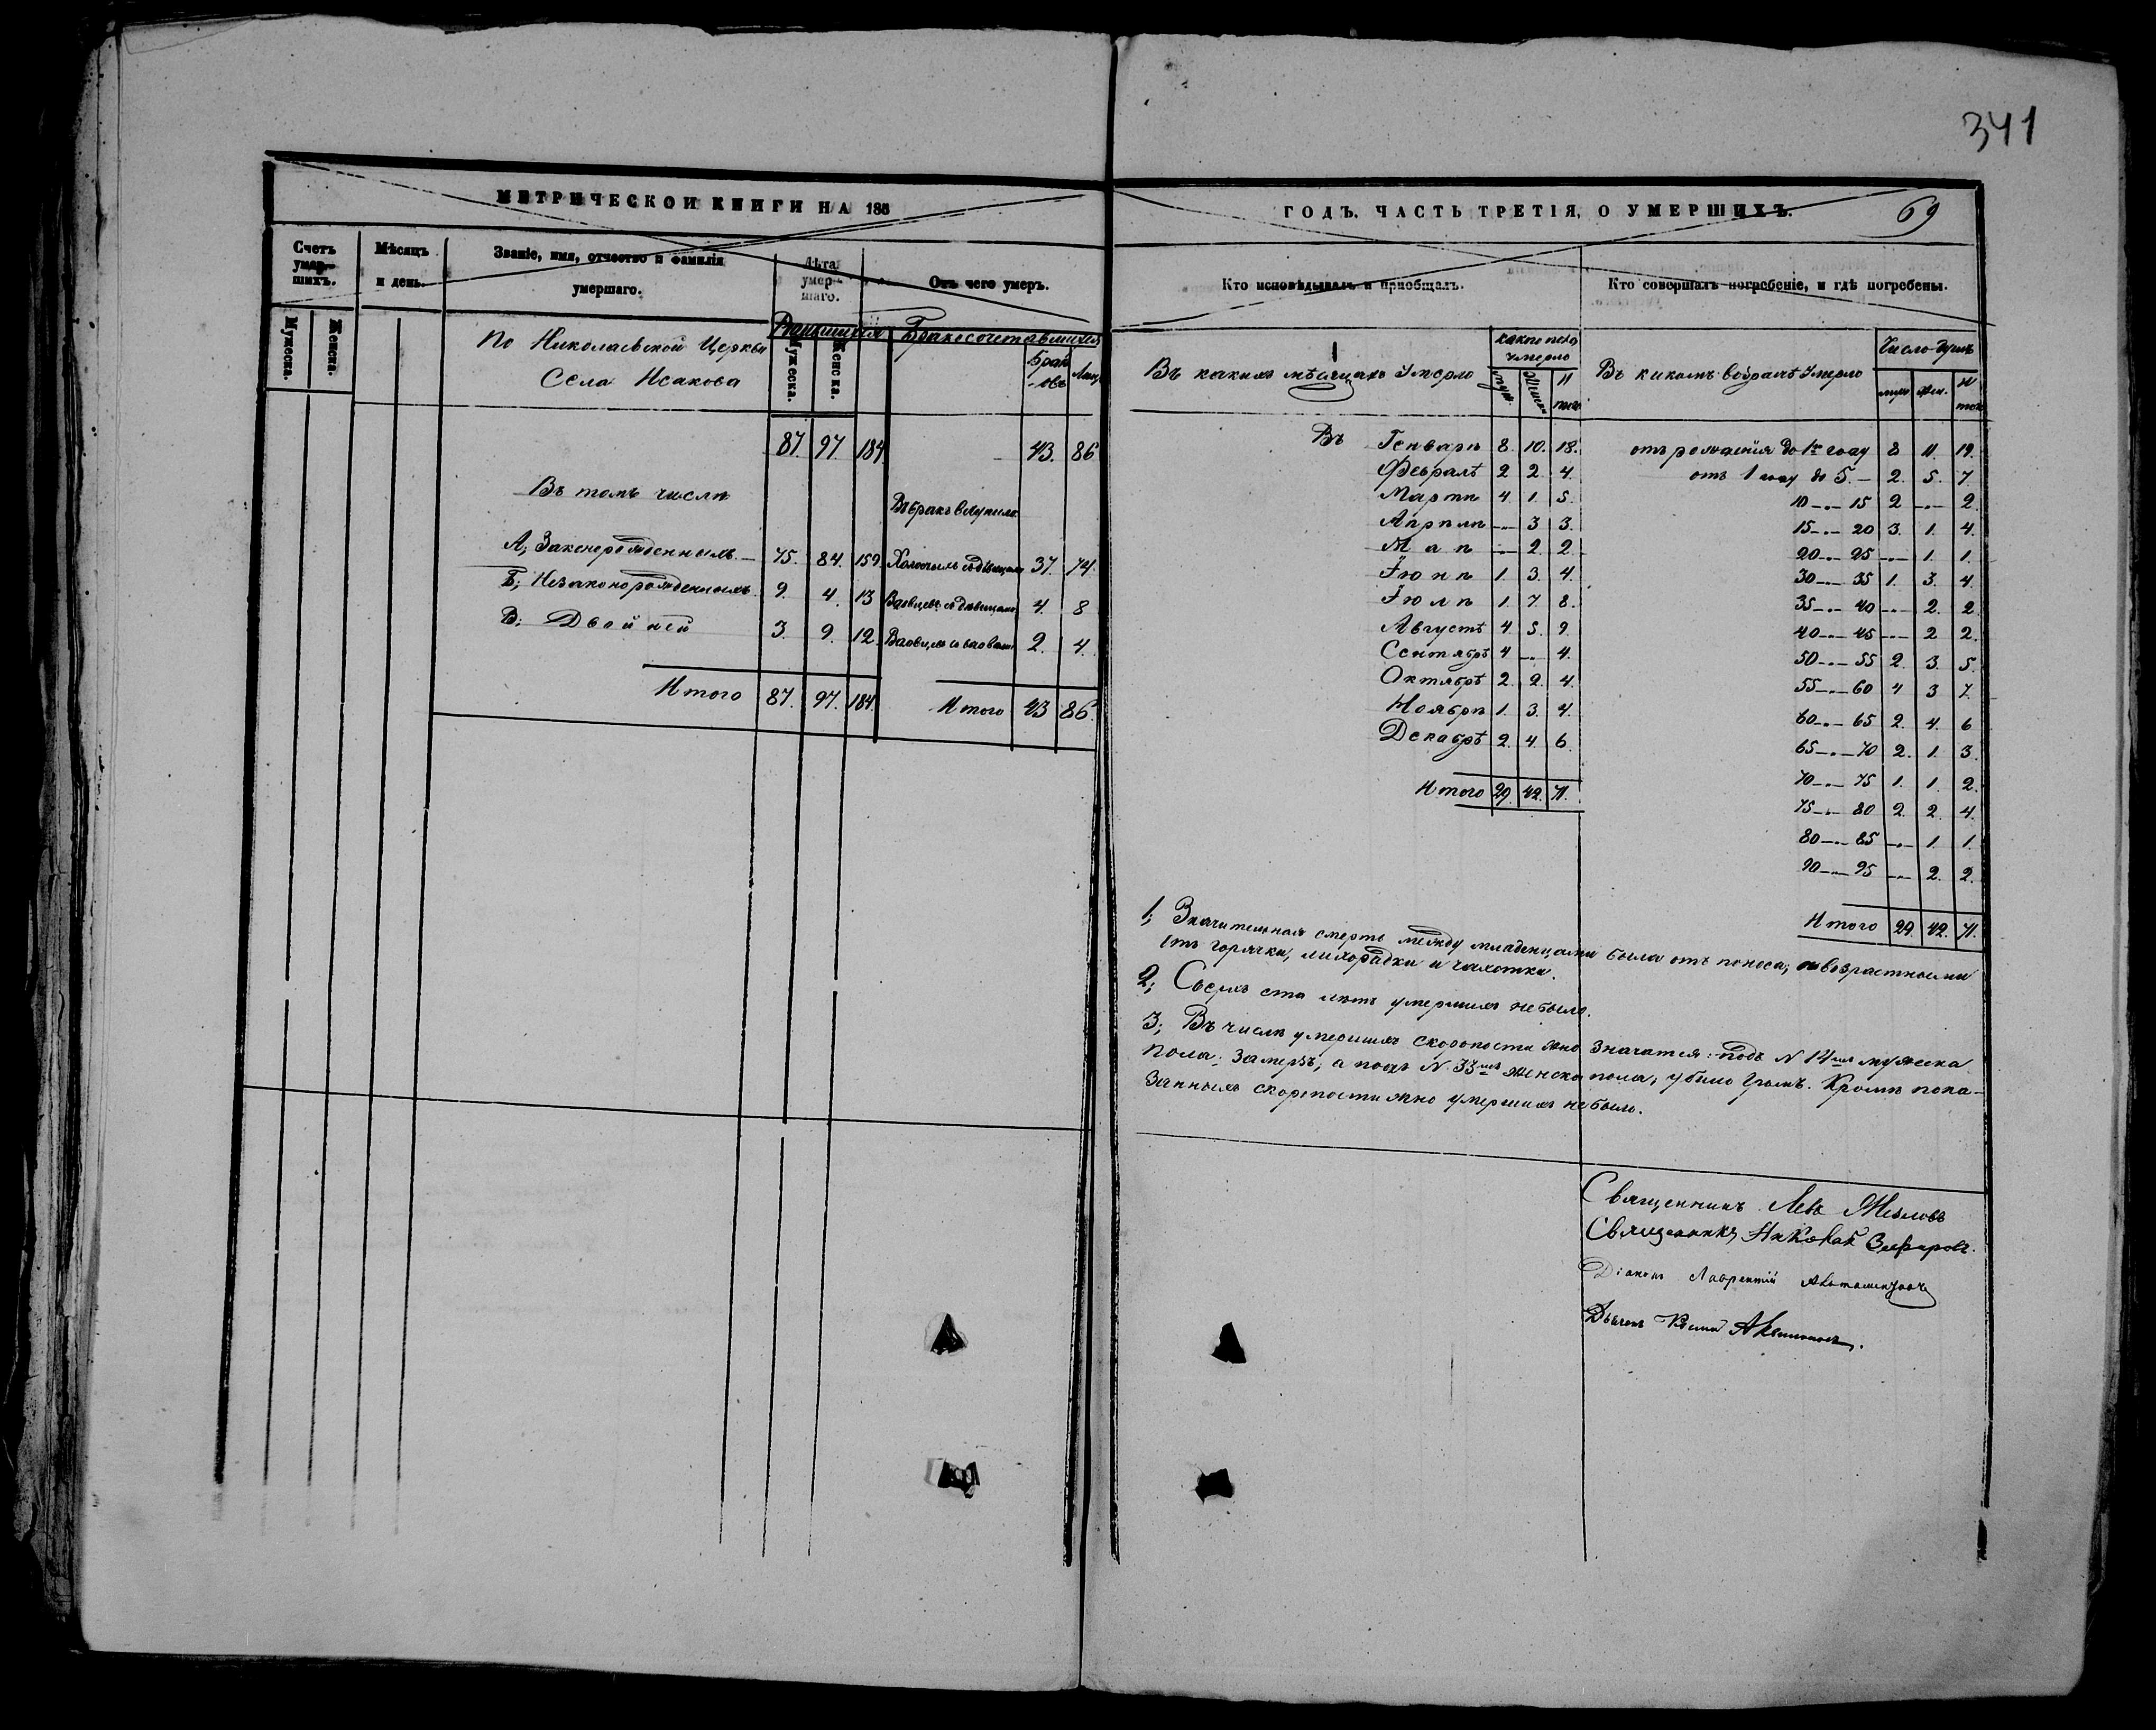 341
МЕТРИЧЕСКОЙ КНИГИ НА 185
Счетъ умершихъ.
Мужеска.
Женска.
Мѣсяцъ и день.
Званіе, имя, отчество и фамилія умершаго.
Лѣта умершаго.
Мужеска.
Женска.
Отъ чего умеръ.
По Николаевской Церкви
Села Исакова
Родившихся
Бракосочетавшихся
Браковъ
Лиц
87. 97 184. 43. 86
Въ томъ числѣ
Въ бракъ вступило
А; Законорожденныхъ 75. 84. 159. Холостыхъ съ дѣвицами 37. 74.
Б; Незаконорожденныхъ 9. 4. 13 Вдовцевъ съ дѣвицами 4. 8
В; Двойней 3. 9. 12. Вдовцевъ со вдовами 2. 4.
Итого 87. 97. 184. Итого 43 86.
ГОДЪ. ЧАСТЬ ТРЕТІЯ, О УМЕРШИХЪ.
69
Кто исповѣдывалъ и пріобщалъ.
Кто совершалъ погребеніе, и гдѣ погребены.
Въ какихъ мѣсяцахъ Умерло
умерло
муж.
Женск
Итого
Въ Генварѣ 8. 10. 18.
Февралѣ 2 2. 4.
Мартѣ 4. 1. 5.
Апрѣлѣ — 3 3.
Маѣ — 2. 2.
Іюнѣ 1. 3. 4.
Іюлѣ 1. 7. 8.
Августѣ 4 5. 9.
Сентябрѣ 4 — 4.
Октябрѣ 2. 2. 4.
Ноябрѣ 1. 3. 4.
Декабрѣ 2. 4. 6.
Итого 29. 42. 71.
Въ какомъ возрастѣ Умерло
Число душъ
муж
жен.
Итого
отъ рожденія до 1го году 8 11. 19.
отъ 1 году до 5. — 2. 5. 7
10 — 15 2 — 2.
15 — 20 3. 1. 4.
20 — 25 — 1. 1.
30 — 35 1. 3. 4
35 — 40 — 2. 2.
40 — 45 — 2 2.
50 — 55 2. 3. 5.
55 — 60 4 3 7.
60 — 65 2. 4. 6
65 — 70 2. 1. 3.
70 — 75 1. 1. 2.
75 — 80 2. 2. 4.
80 — 85 — 1. 1.
90 — 95 — 2. 2.
Итого 29. 42. 71.
1; Значительная смерть между младенцами была отъ поноса; возрастными
отъ горячки, лихорадки и чахотки.
2; Сверхъ ста лѣтъ умершихъ небыло.
3; Въ числѣ умершихъ скоропостижно значатся: подъ N 14мъ мужеска
пола: замерзъ; а подъ N. 33мъ женска пола; убило громъ. Кромѣ пока-
занныхъ скоропостижно умершихъ небыло.
Священникъ Левъ
Священникъ Николай Зефировъ.
Діаконъ Лаврентій
Дьячекъ Косма